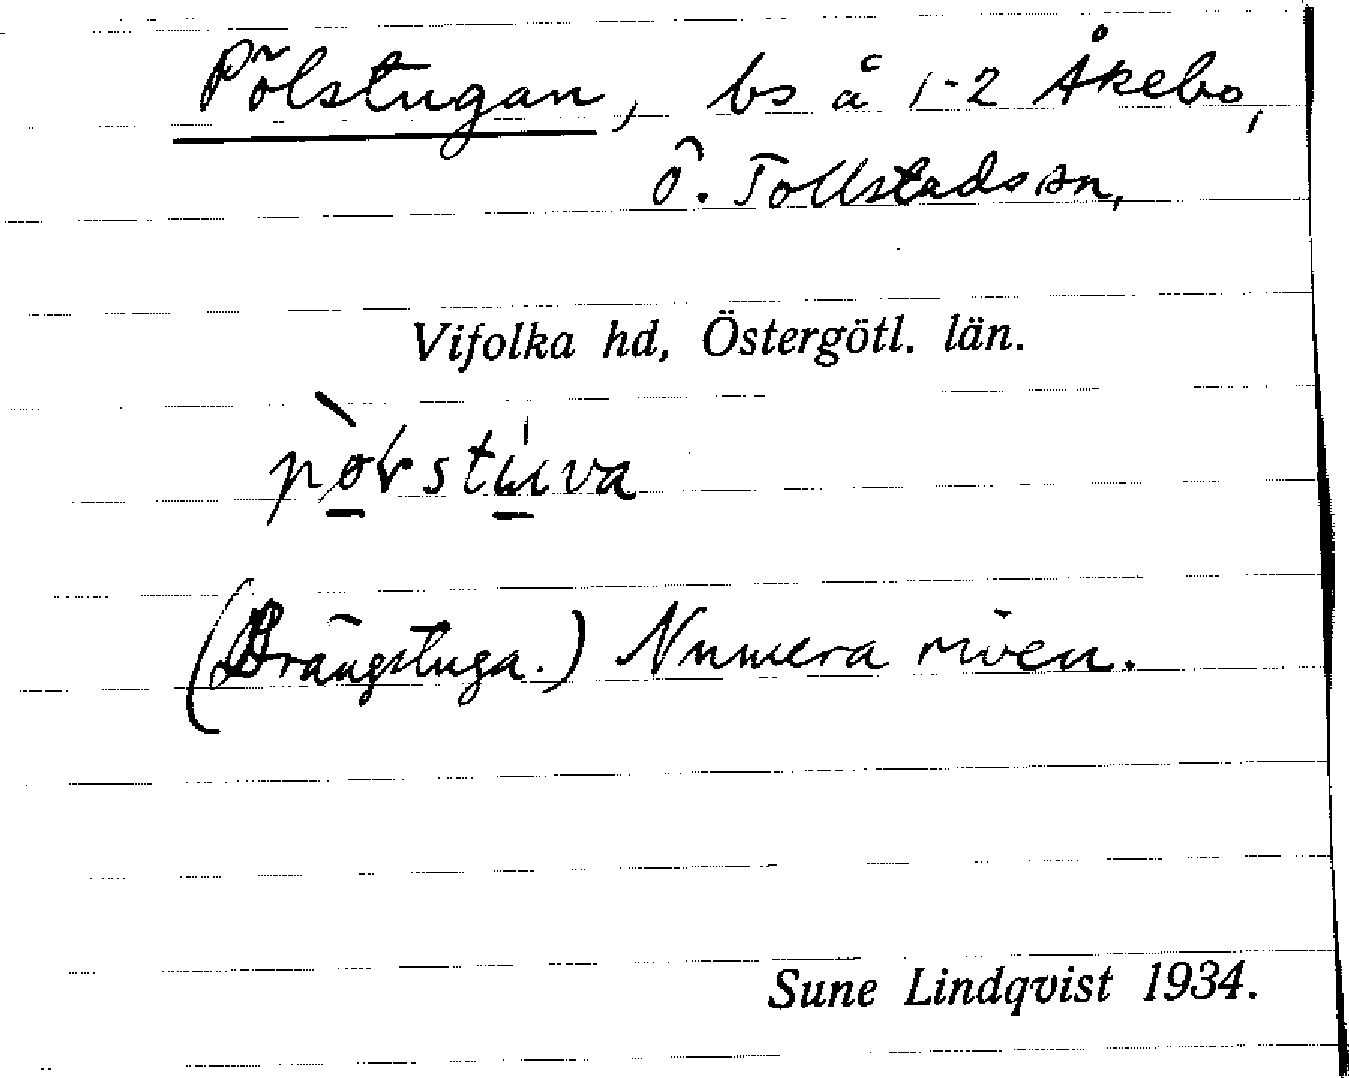 Pölstugan, bs å 1-2 Åkebo,
Ö. Tollstads sn,
Vifolka hd, Östergötl. län.
(Drängstuga.) Numera riven.
Sune Lindqvist 1934.